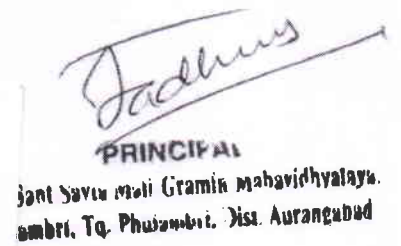 PRINCIPAL
Sant Savta Mali Gramin Mahavidhyalaya.
Tq. Phulambri, Dist. Aurangabad